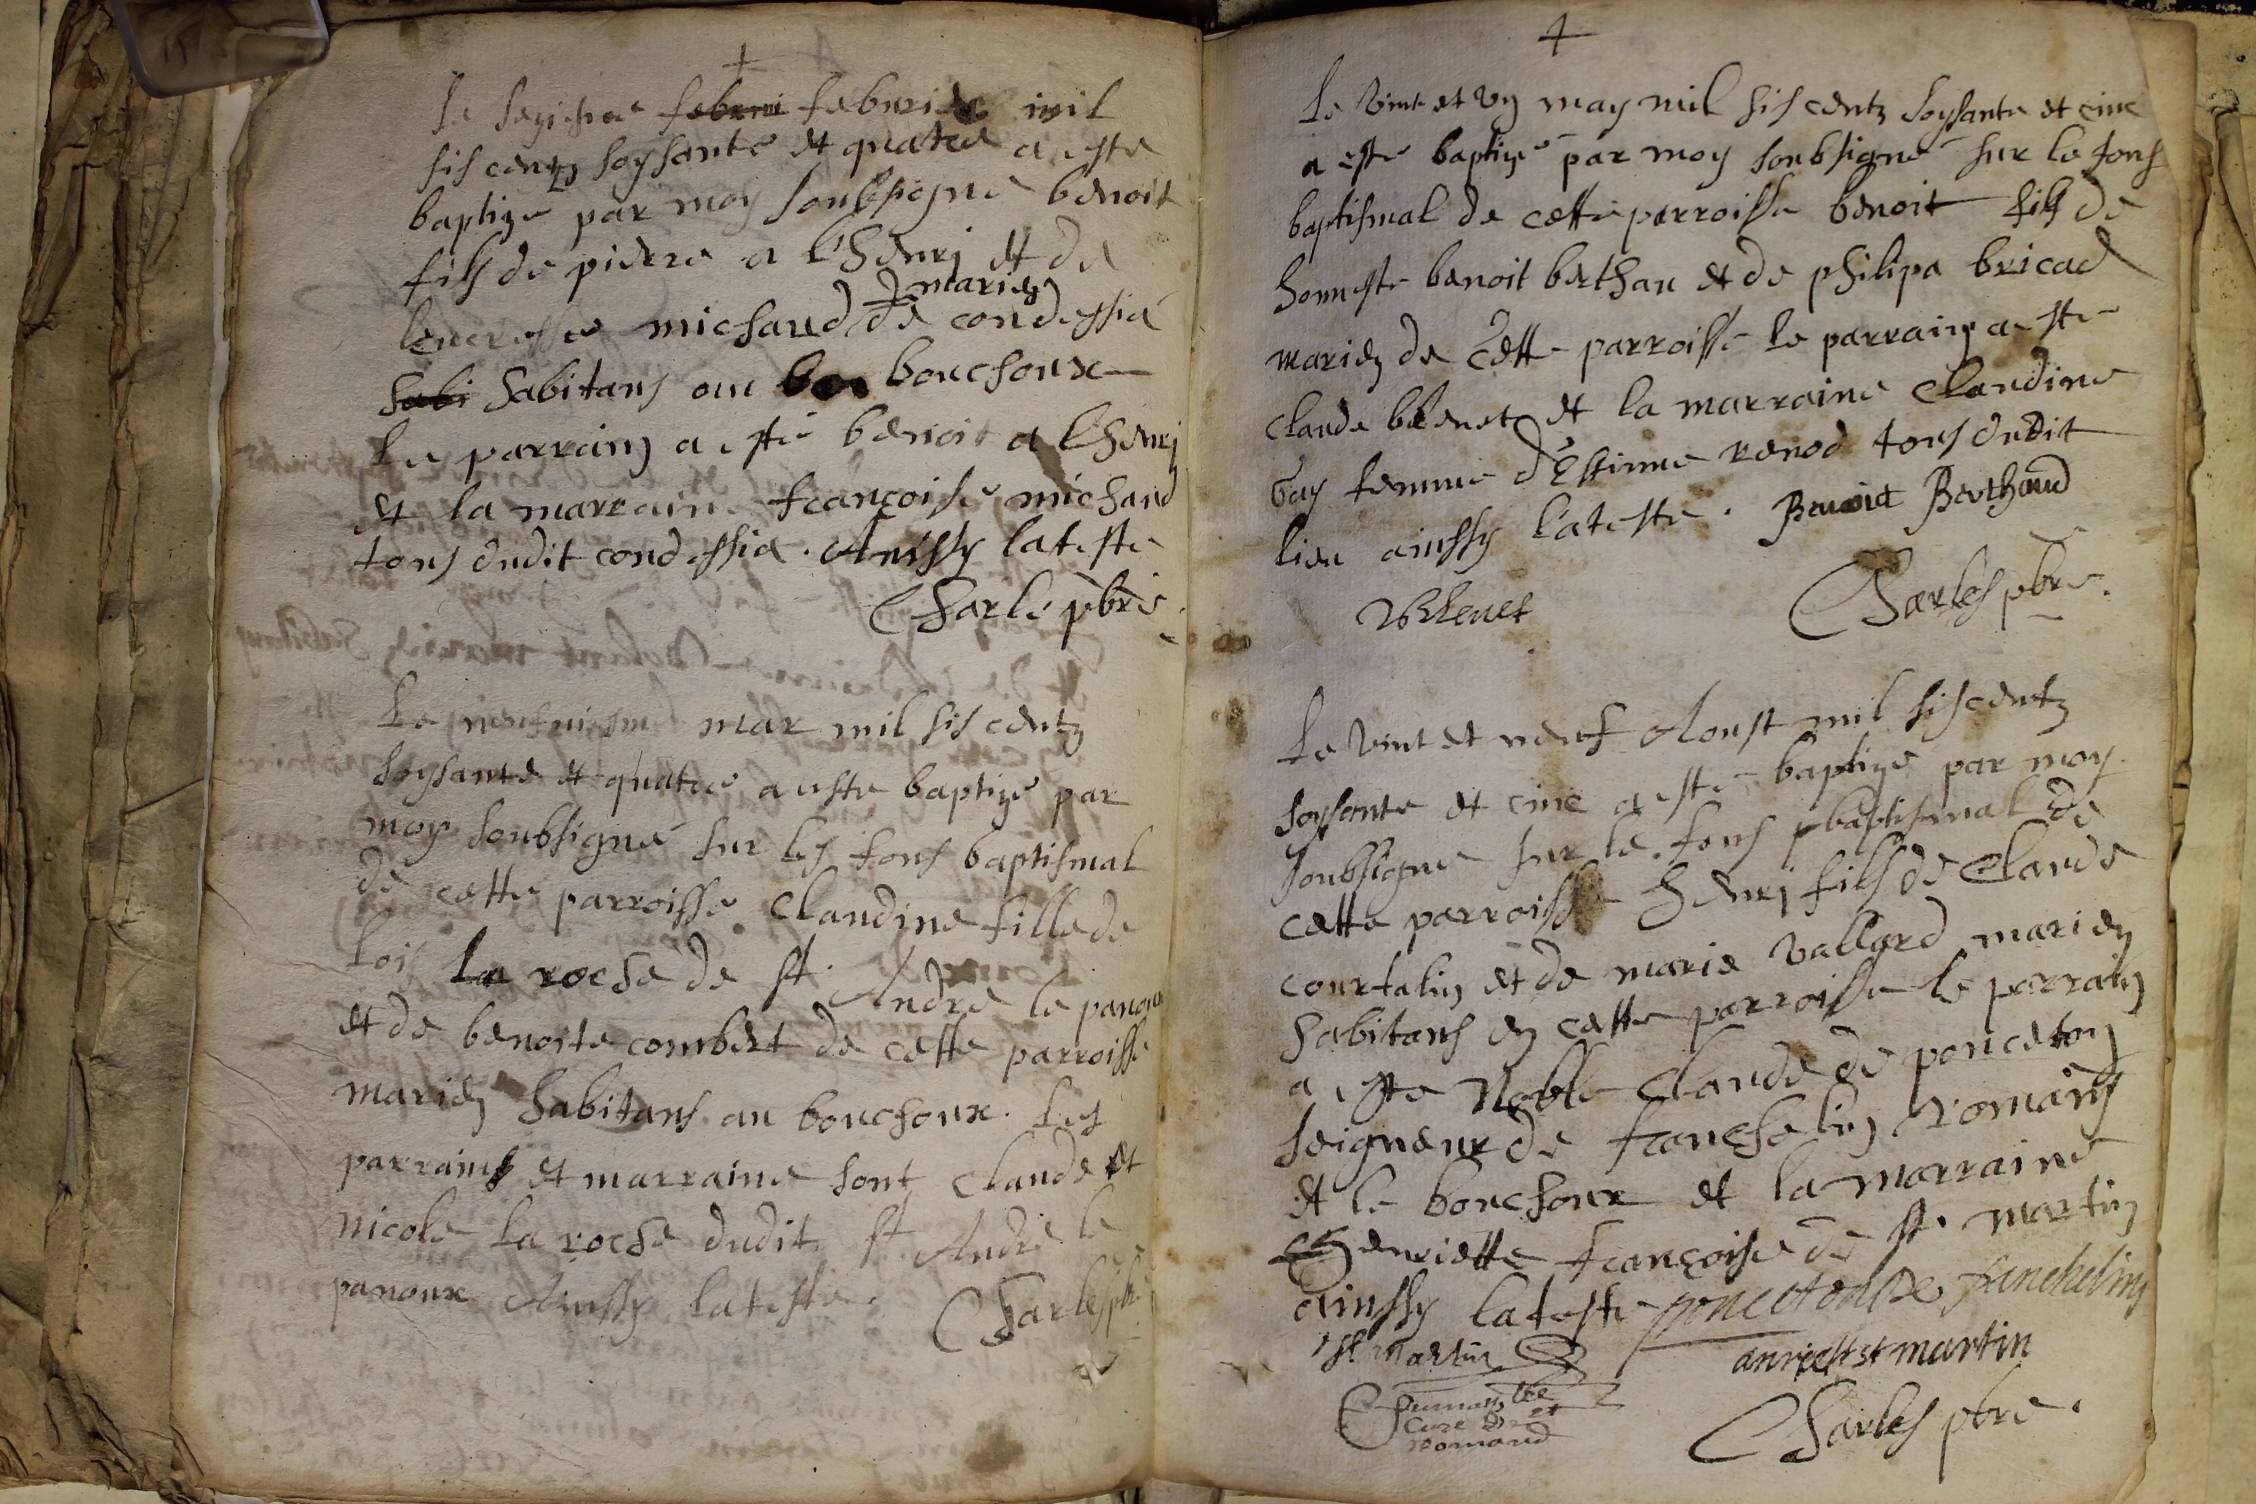 +
Le sezisme febrier mil
sis centz soysante et quatre a este
baptize par moy soubsigne benoit
fils de pierre a lhenri et de
mariez
michaud de condessia
habi habitans au bouchoux
Le parrain a este benoit a lhenri
et la marraine françoise michaud
tous dudit condessia. Ainssy lateste
Charle pbre.
Le neufuisme mar mil sis centz
soysante et quatre a este baptize par
moy soubsigné sur les fons baptismal
de cette parroisse Claudine fille de
lois la roche de st. André le panoux
et de benoite combet de cette parroisse
mariez habitans au bouchoux. Les
parrains et marraine sont Claude et
nicole la roche dudit st André le
panoux Ainssy lateste. Charles pbr.
+
Le vint et un may mil sis centz soysante et cinc
a este baptize par moy soubsigné sur le fons
baptismal de cette parroisse benoit fils de
honneste benoit berthau et de philipa bricad
mariez de cette parroisse le parrain a este
Claude blenet et la marraine Claudine
Gay femme d'Estienne renod tous dudit
lieu ainssy lateste. Benoict Berthaud
Blenet Charles pbre.
Le vint et neuf Aoust mil sis centz
soysante et cinc a este baptize par moy
soubsigne sur le fons baptismal de
cette parroisse henri fils de Claude
courtalin et de marie vallard mariez
habitans en cette parroisse le parrain
a este Noble Claude de ponceton
seigneur de franchelin romains
et le bouchoux et la marraine
henriette françoise de st. martin
ainssy lateste ponceton de francheling
st martin anriett st martin
cure de
romand
Charles pbre.